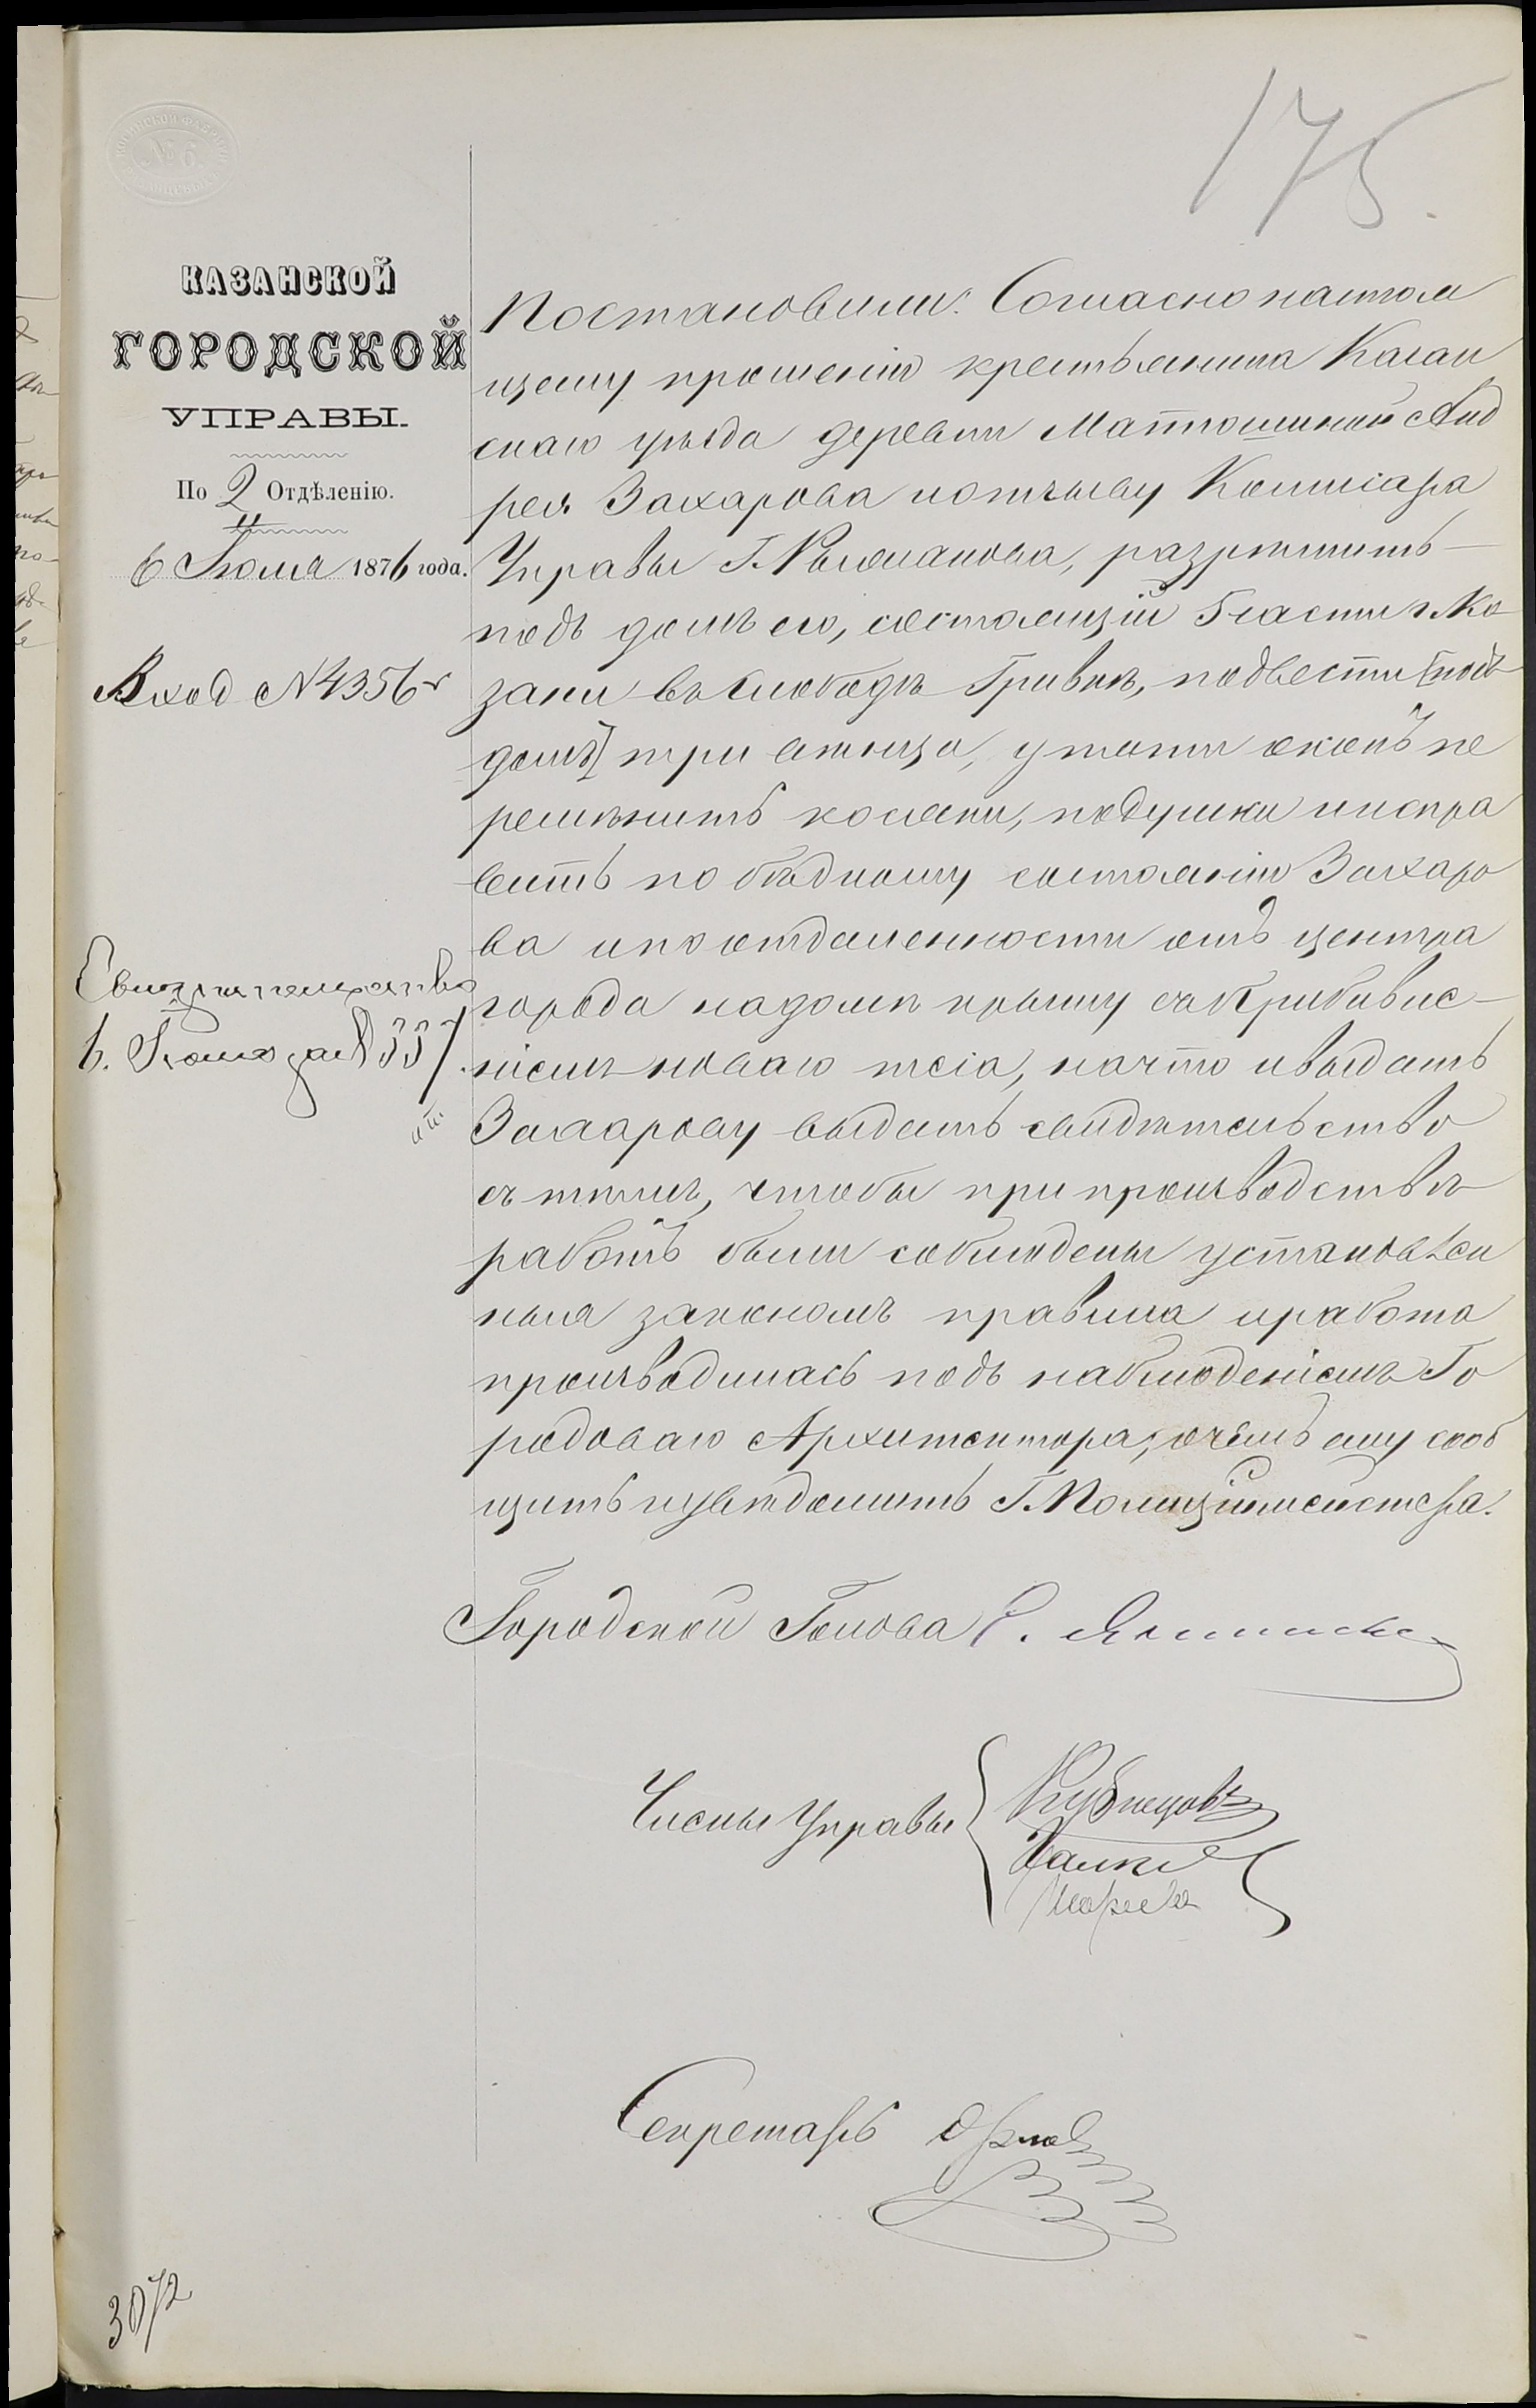 175
№ 6
КАЗАНСКОЙ
ГОРОДСКОЙ
УПРАВЫ.
По 2 Отдѣленію.
6 Іюля 1876 года.
Вход №4356
Свидѣтельство
6. Іюля за № 337.
Постановили: Согласно настоя
щему прошенію крестьянина Казан
скаго уѣзда деревни Матюшиной Анд
рея Захарова и отзыву Коммисара
Управы Г. разрѣшить
подъ домъ его, состоящій 5 части г. Ка
зани въ слободѣ Гривкѣ, подвести [подъ
домъ] три венца, у оконъ пе
ремѣнить косяки, подушки и испра
вить по бѣдному состоянію Захаро
ва и по отдаленности отъ центра
города на домѣ крышу съ прибавле-
ніемъ новаго тёса, на что и выдать
Захарову выдать свидѣтельство
съ тѣмъ, чтобы при производствѣ
работъ были соблюдены установлен
ныя закономъ правила и работа
производилась подъ наблюденіемъ Го
родоваго Архитектора, о чемъ ему сооб
щить и увѣдомить Г. Полиціймейстера.
Городской Голова Э. Янишевс
Члены Управы
Кузнецовъ
Секретарь Орлов
3072